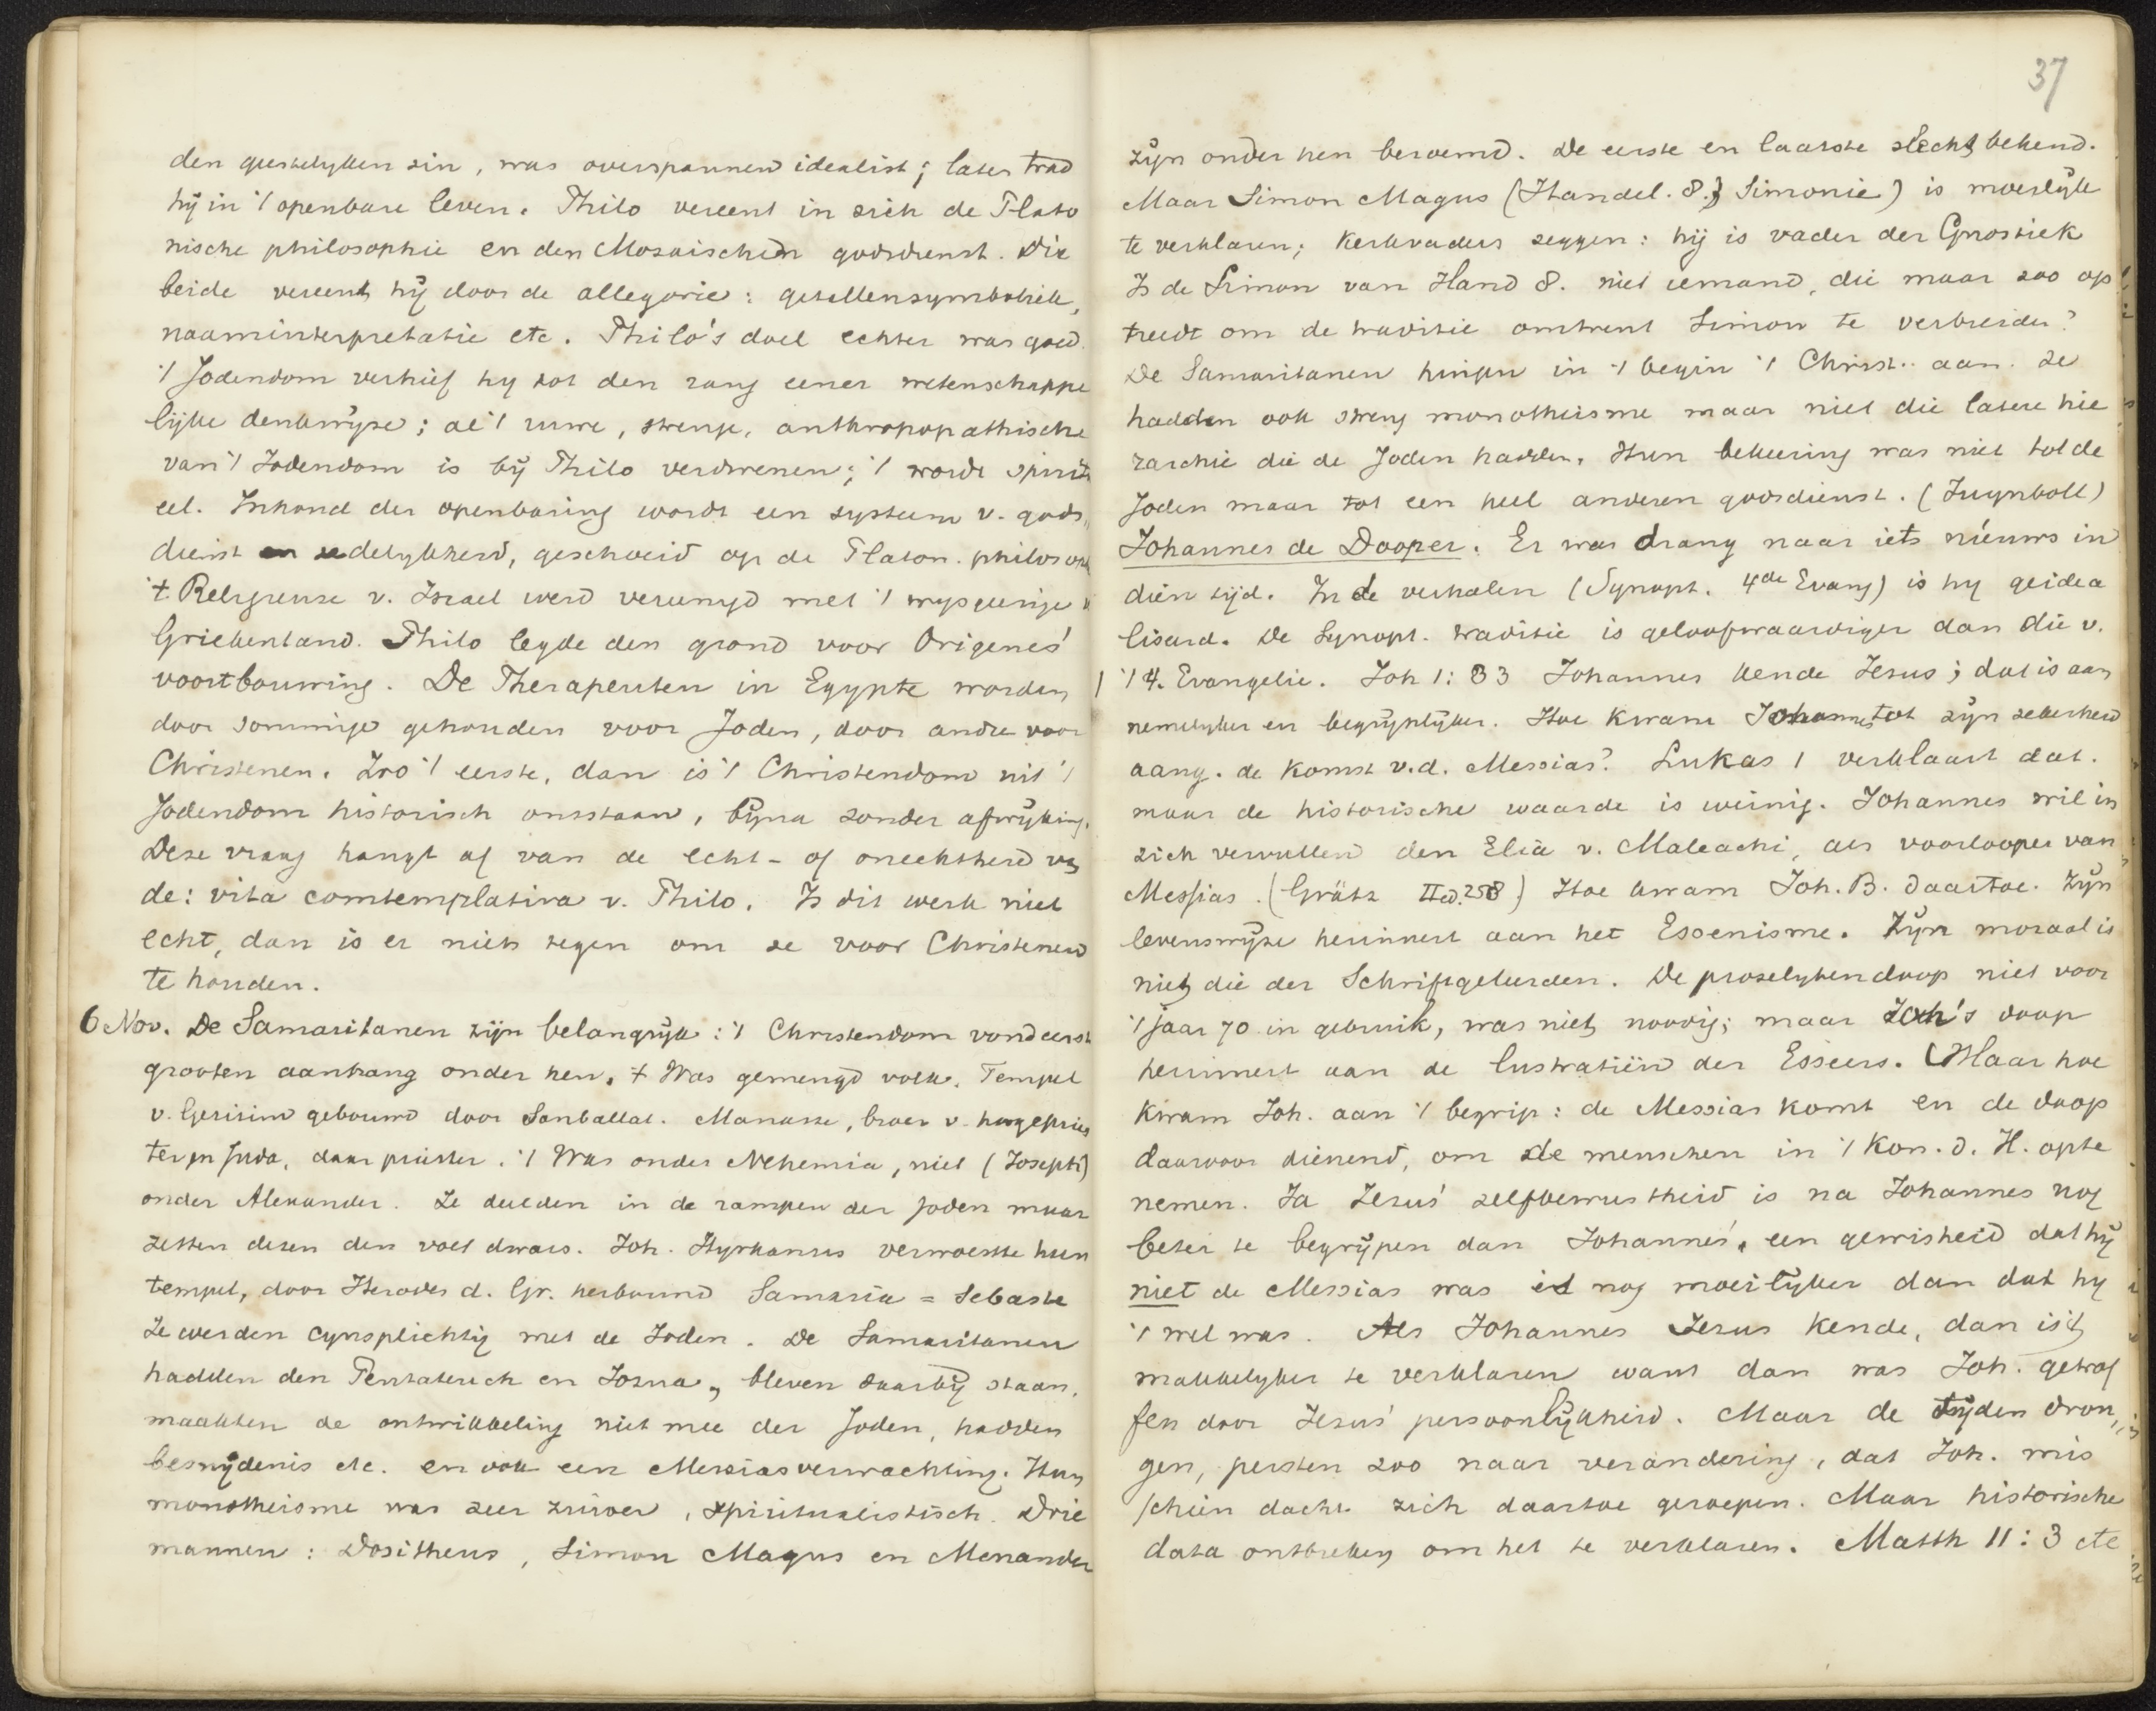 den geestelyken zin, was overspannen idealist; later trad
hij in 't openbare leven. Philo vereent in zich de Plato
nische philosophie en den Mozaischen godsdienst. Die
beide vereent hij door de allegorie: getallensymboliek,
naaminterpretatie etc. Philo's doel echter was goed.
't Jodendom verhief hy tot den rang eener wetenschappe
lijke denkwyze; al 't ruwe, strenge, anthropopathische
van 't Jodendom is bij Philo verdwenen; 't wordt spiritu
eel. Inhoud der openbaring wordt een systeem v. gods„
dienst en zedelykheid, geschoeid op de Platon. philosoph
't Religieuze v. Israel werd vereenigd met 't wysgeerige v
Griekenland. Philo legde den grond voor Origenes'
voortbouwing. De Therapeuten in Egypte worden
door sommige gehouden voor Joden, door andre voor
Christenen. Zoo 't eerste, dan is 't Christendom uit 't
Jodendom historisch ontstaan, byna zonder afwyking.
Deze vraag hangt af van de echt- of onechtheid van
de: vita comtemplativa v. Philo. Is dit werk niet
echt, dan is er niets tegen om ze voor Christenen
te houden.
6 Nov. De Samaritanen zijn belangrijk: 't Christendom vond eerst
grooten aanhang onder hen. 't Was gemengd volk. Tempel
v. Gerizim gebouwd door Sanballat. Manasse, broer v. hoogepries
ter in Juda, daar priester. 't Was onder Nehemia, niet (Joseph)
onder Alexander. Ze deelden in de rampen der Joden maar
zetten dezen den voet dwars. Joh. Hyrkanus verwoestte hun
tempel, door Herodes d. Gr. herbouwd Samaria = Sebaste
Ze werden cynsplichtig met de Joden. De Samaritanen
hadden den Pentateuch en Jozua, bleven daarby staan,
maakten de ontwikkeling niet mee der Joden, hadden
besnydenis etc. en ook een Messiasverwachting. Hun
monotheisme was zeer zuiver, spiritualistisch. Drie
mannen: Dositheus, Simon Magus en Menander
37
zijn onder hen beroemd. De eerste en laatste slecht bekend.
Maar Simon Magus (Handel. 8.; Simonie) is moeilijk
te verklaren; kerkvaders zeggen: hij is vader der Gnostiek
Is de Simon van Hand 8. niet iemand, die maar zoo op
treedt om de traditie omtrent Simon te verbreiden?
De Samaritanen hingen in 't begin 't Christ.. aan. Ze
hadden ook streng monotheisme maar niet die latere hie
rarchie die de Joden hadden. Hun bekeering was niet tot de
Joden maar tot een heel anderen godsdienst. (Juynboll)
Johannes de Dooper. Er was drang naar iets nieuws in
dien tijd. In de verhalen (Synopt. 4de Evang) is hy geidea
liseerd. De Synopt. traditie is geloofwaardiger dan die v.
't 4. Evangelie. Joh 1:33 Johannes kende Jezus; dat is aan
nemelyker en begrijplijker. Hoe kwam Johannes tot zijn zekerheid
aang. de komst v.d. Messias? Lukas 1 verklaart dat.
maar de historische waarde is weinig. Johannes wil in
zich vervullen den Elia v. Maleachi, als voorlooper van
Messias. (Grätz IIed. 258) Hoe kwam Joh. B. daartoe. Zijn
levenswijze herinnert aan het Essenisme. Zijn moraal is
niet die der Schriftgeleerden. De proselytendoop niet voor
't jaar 70 in gebruik, was niet noodig; maar Joh's doop
herinnert aan de lustratiën der Esseers. Maar hoe
kwam Joh. aan 't begrip: de Messias komt en de doop
daarvoor dienend, om de menschen in 't Kon. d. H. op te
nemen. Ja Jezus' zelfbewustheid is na Johannes nog
beter te begrijpen dan Johannes', een gewisheid dat hij
niet de Messias was is nog moeilyker dan dat hy
't wel was. Als Johannes Jezus kende, dan is 't
makkelyker te verklaren want dan was Joh. getrof
fen door Jezus' persoonlijkheid. Maar de tijden dron„
gen, persten zoo naar verandering, dat Joh. mis
schien dacht zich daartoe geroepen. Maar historische
data ontbreken om het te verklaren. Matth 11:3 etc